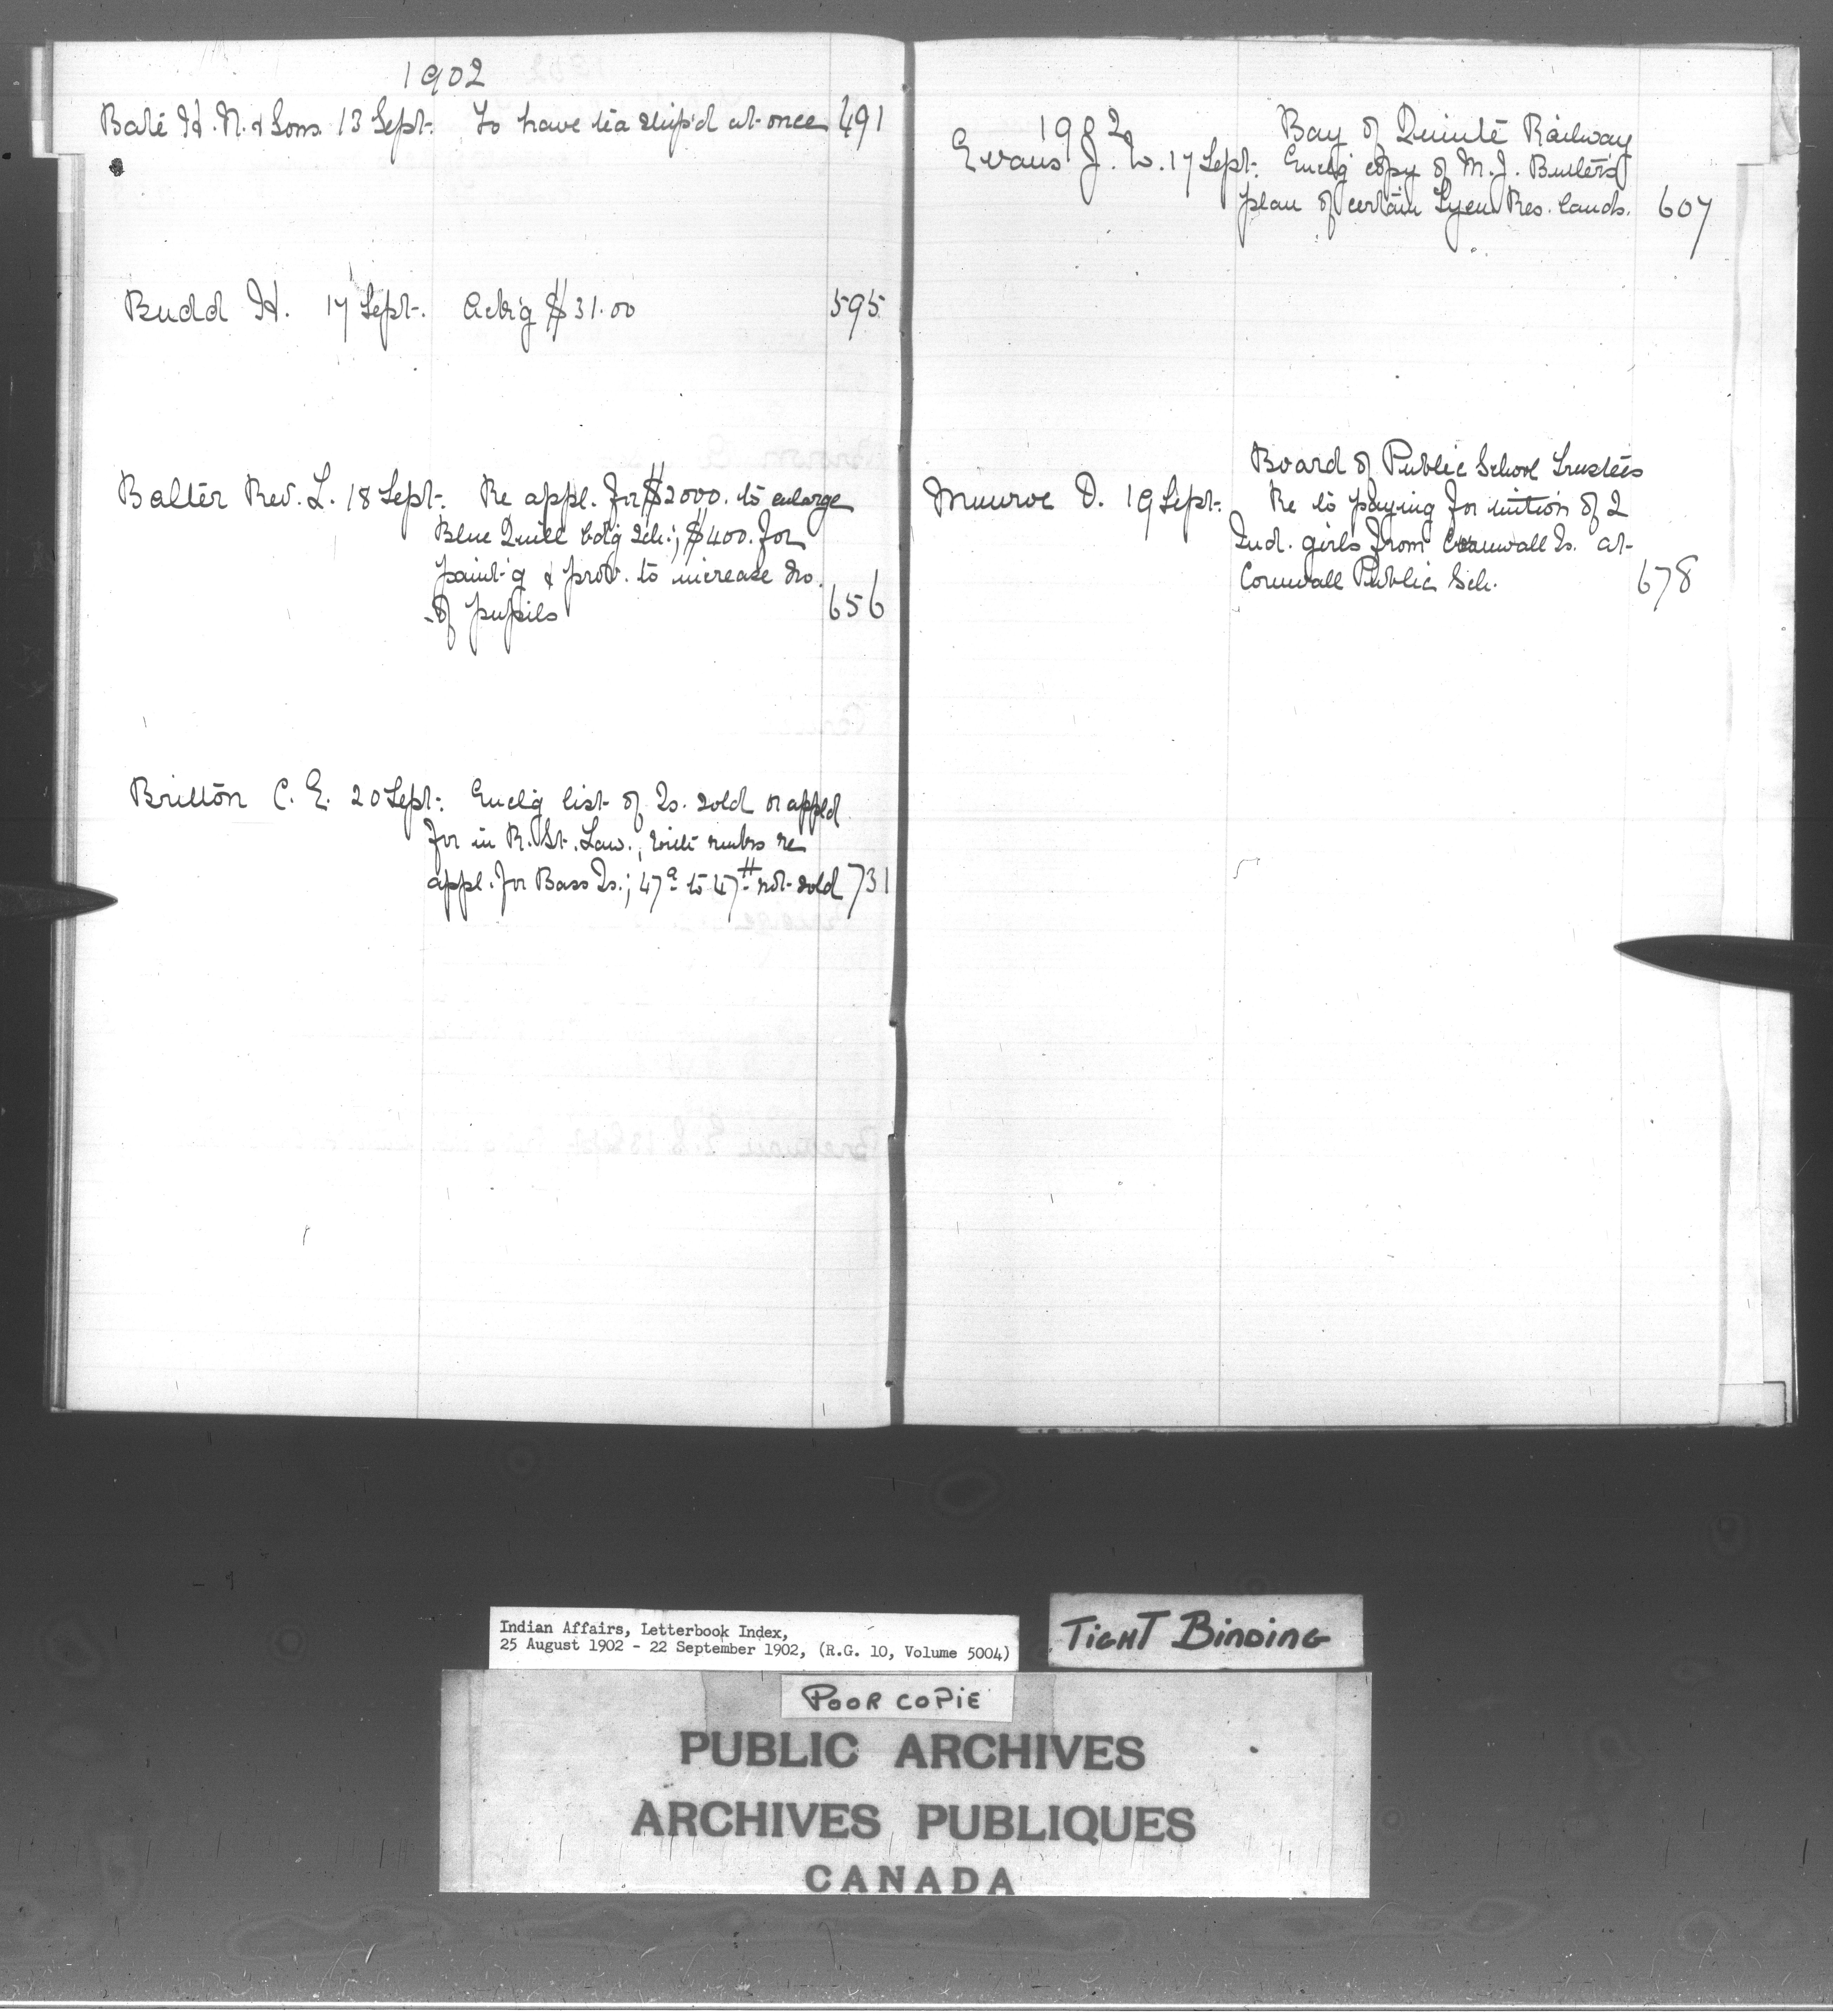 1902
Bate H. N. & Sons 13 Sept. To have tea ship'd at once 491
Budd H. 17 Sept. Ack'g $31.00 595
Balter Rev. L. 18 Sept. Re appl. for $2000. to enlarge
Blue Quill bdg Sch.; $400. for
paint-g & prov. to increase No.
of pupils 656
Britton C. E. 20 Sept. Encl'g list of Is. sold or appld
for in R. St. Law.; with rmks re
appl. for Bass Is.; 47a to 47H not sold 731
1902
Bay of Quinté Railway
Evans J. W. 17 Sept. Encl'g copy of M. J. Butler's
plan of certain Tyen. Res. lands. 607
Board of Public School Trustees
Munroe D. 19 Sept. Re to paying for tuition of 2
Ind. girls from Cornwall Is. at
Cornwall Public Sch. 678
Indian Affairs, Letterbook Index,
25 August 1902 - 22 September 1902, (R.G. 10, Volume 5004)
TIGHT BINDING
POOR COPIE
PUBLIC ARCHIVES
ARCHIVES PUBLIQUES
CANADA